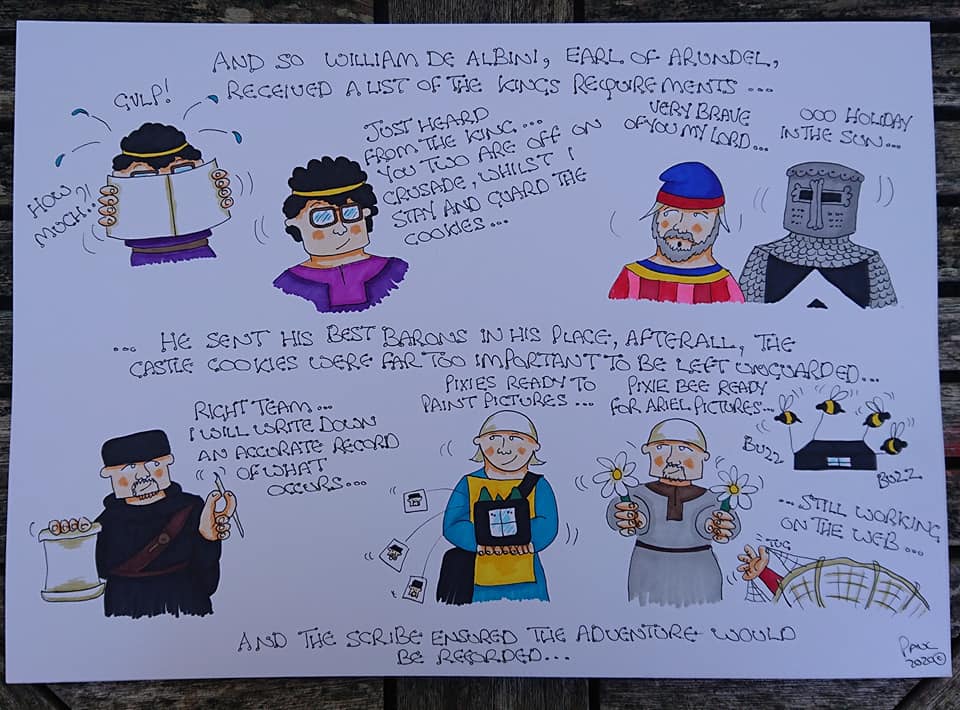 AND SO WILLIAM DE ALBINI, EARL OF ARUNDEL,
RECEIVED A LIST OF THE KINGS REQUIREMENTS ...
GULP!
HOW
MUCH..?!
JUST HEARD
FROM THE KING...
YOU TWO ARE OFF ON
CRUSADE, WHILST I
STAY AND GUARD THE
COOKIES...
VERY BRAVE
OF YOU MY LORD...
OOO HOLIDAY
IN THE SUN...
... HE SENT HIS BEST BARONS IN HIS PLACE, AFTERALL, THE
CASTLE COOKIES WERE FAR TOO IMPORTANT TO BE LEFT UNGUARDED...
RIGHT TEAM...
I WILL WRITE DOWN
AN ACCURATE RECORD
OF WHAT
OCCURS...
PIXIES READY TO
PAINT PICTURES ...
PIXIE BEE READY
FOR ARIEL PICTURES...
BUZZ
BUZZ
... STILL WORKING
ON THE WEB ...
-TUG
AND THE SCRIBE ENSURED THE ADVENTURE WOULD
BE RECORDED...
PAUL
2020©